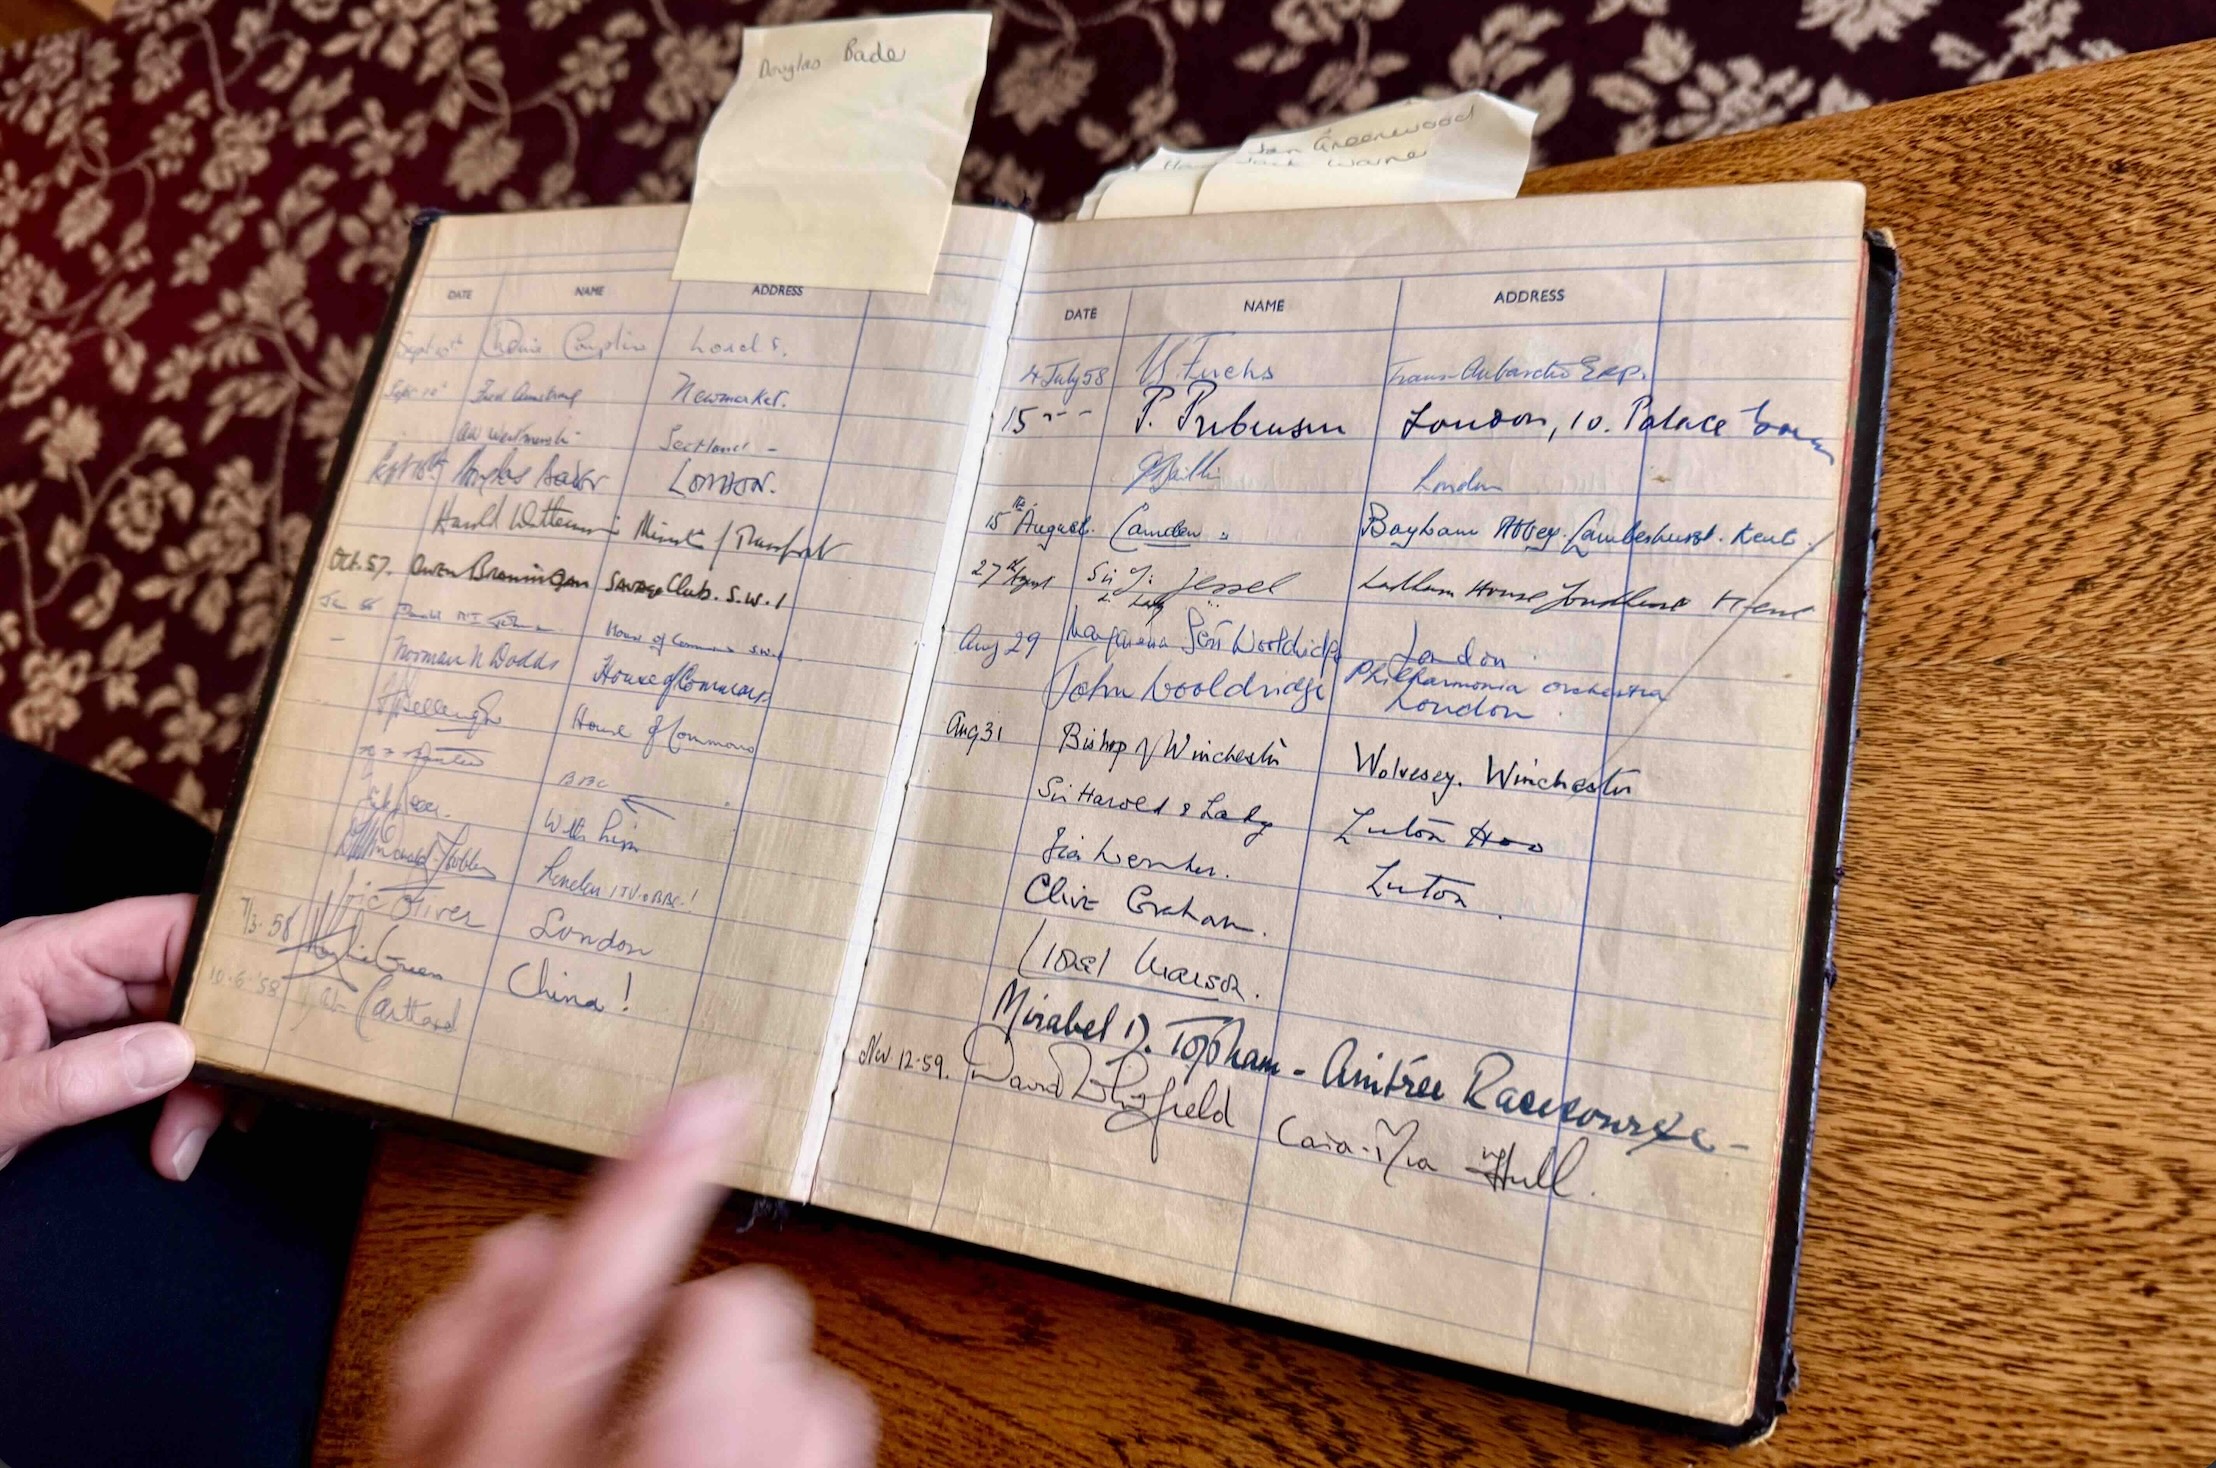 Douglas Bader
Jon Greenwood
Jack Warner
DATE NAME ADDRESS
Denis Compton Lord's.
Sept 10th Fred Armstrong Newmarket.
Scotland -
Sept 10th Douglas Bader LONDON.
Harold Watkinson Minist / Transport
Oct. 57. Owen Brannigan SAVAGE Club. S.W.1
House of Commons S.W.1
Norman N Dodds House of Commons
F Bellenger House of Commons
BBC
With him
London ITV & BBC!
Vic Oliver London
7/3.58 Hughie Green China!
10.6.58
DATE NAME ADDRESS
4 July 58 V Fuchs Trans-Antarctic Exp.
15 - - - London, 10. Palace
London
15th August. Camden Bayham Abbey. Lamberhurst. Kent.
27th August Sir Jessel House
& Lady
Aug 29 Wooldridge London
John Wooldridge Philharmonia orchestra
London
Aug 31 Bishop of Winchester Wolvesey. Winchester
Sir Harold & Lady Luton Hoo
Zia Wernher. Luton.
Clive Graham.
Lionel Marson.
Mirabel D. Topham - Aintree Racecourse -
Nov. 12-59. David Cara-Mia Hull.